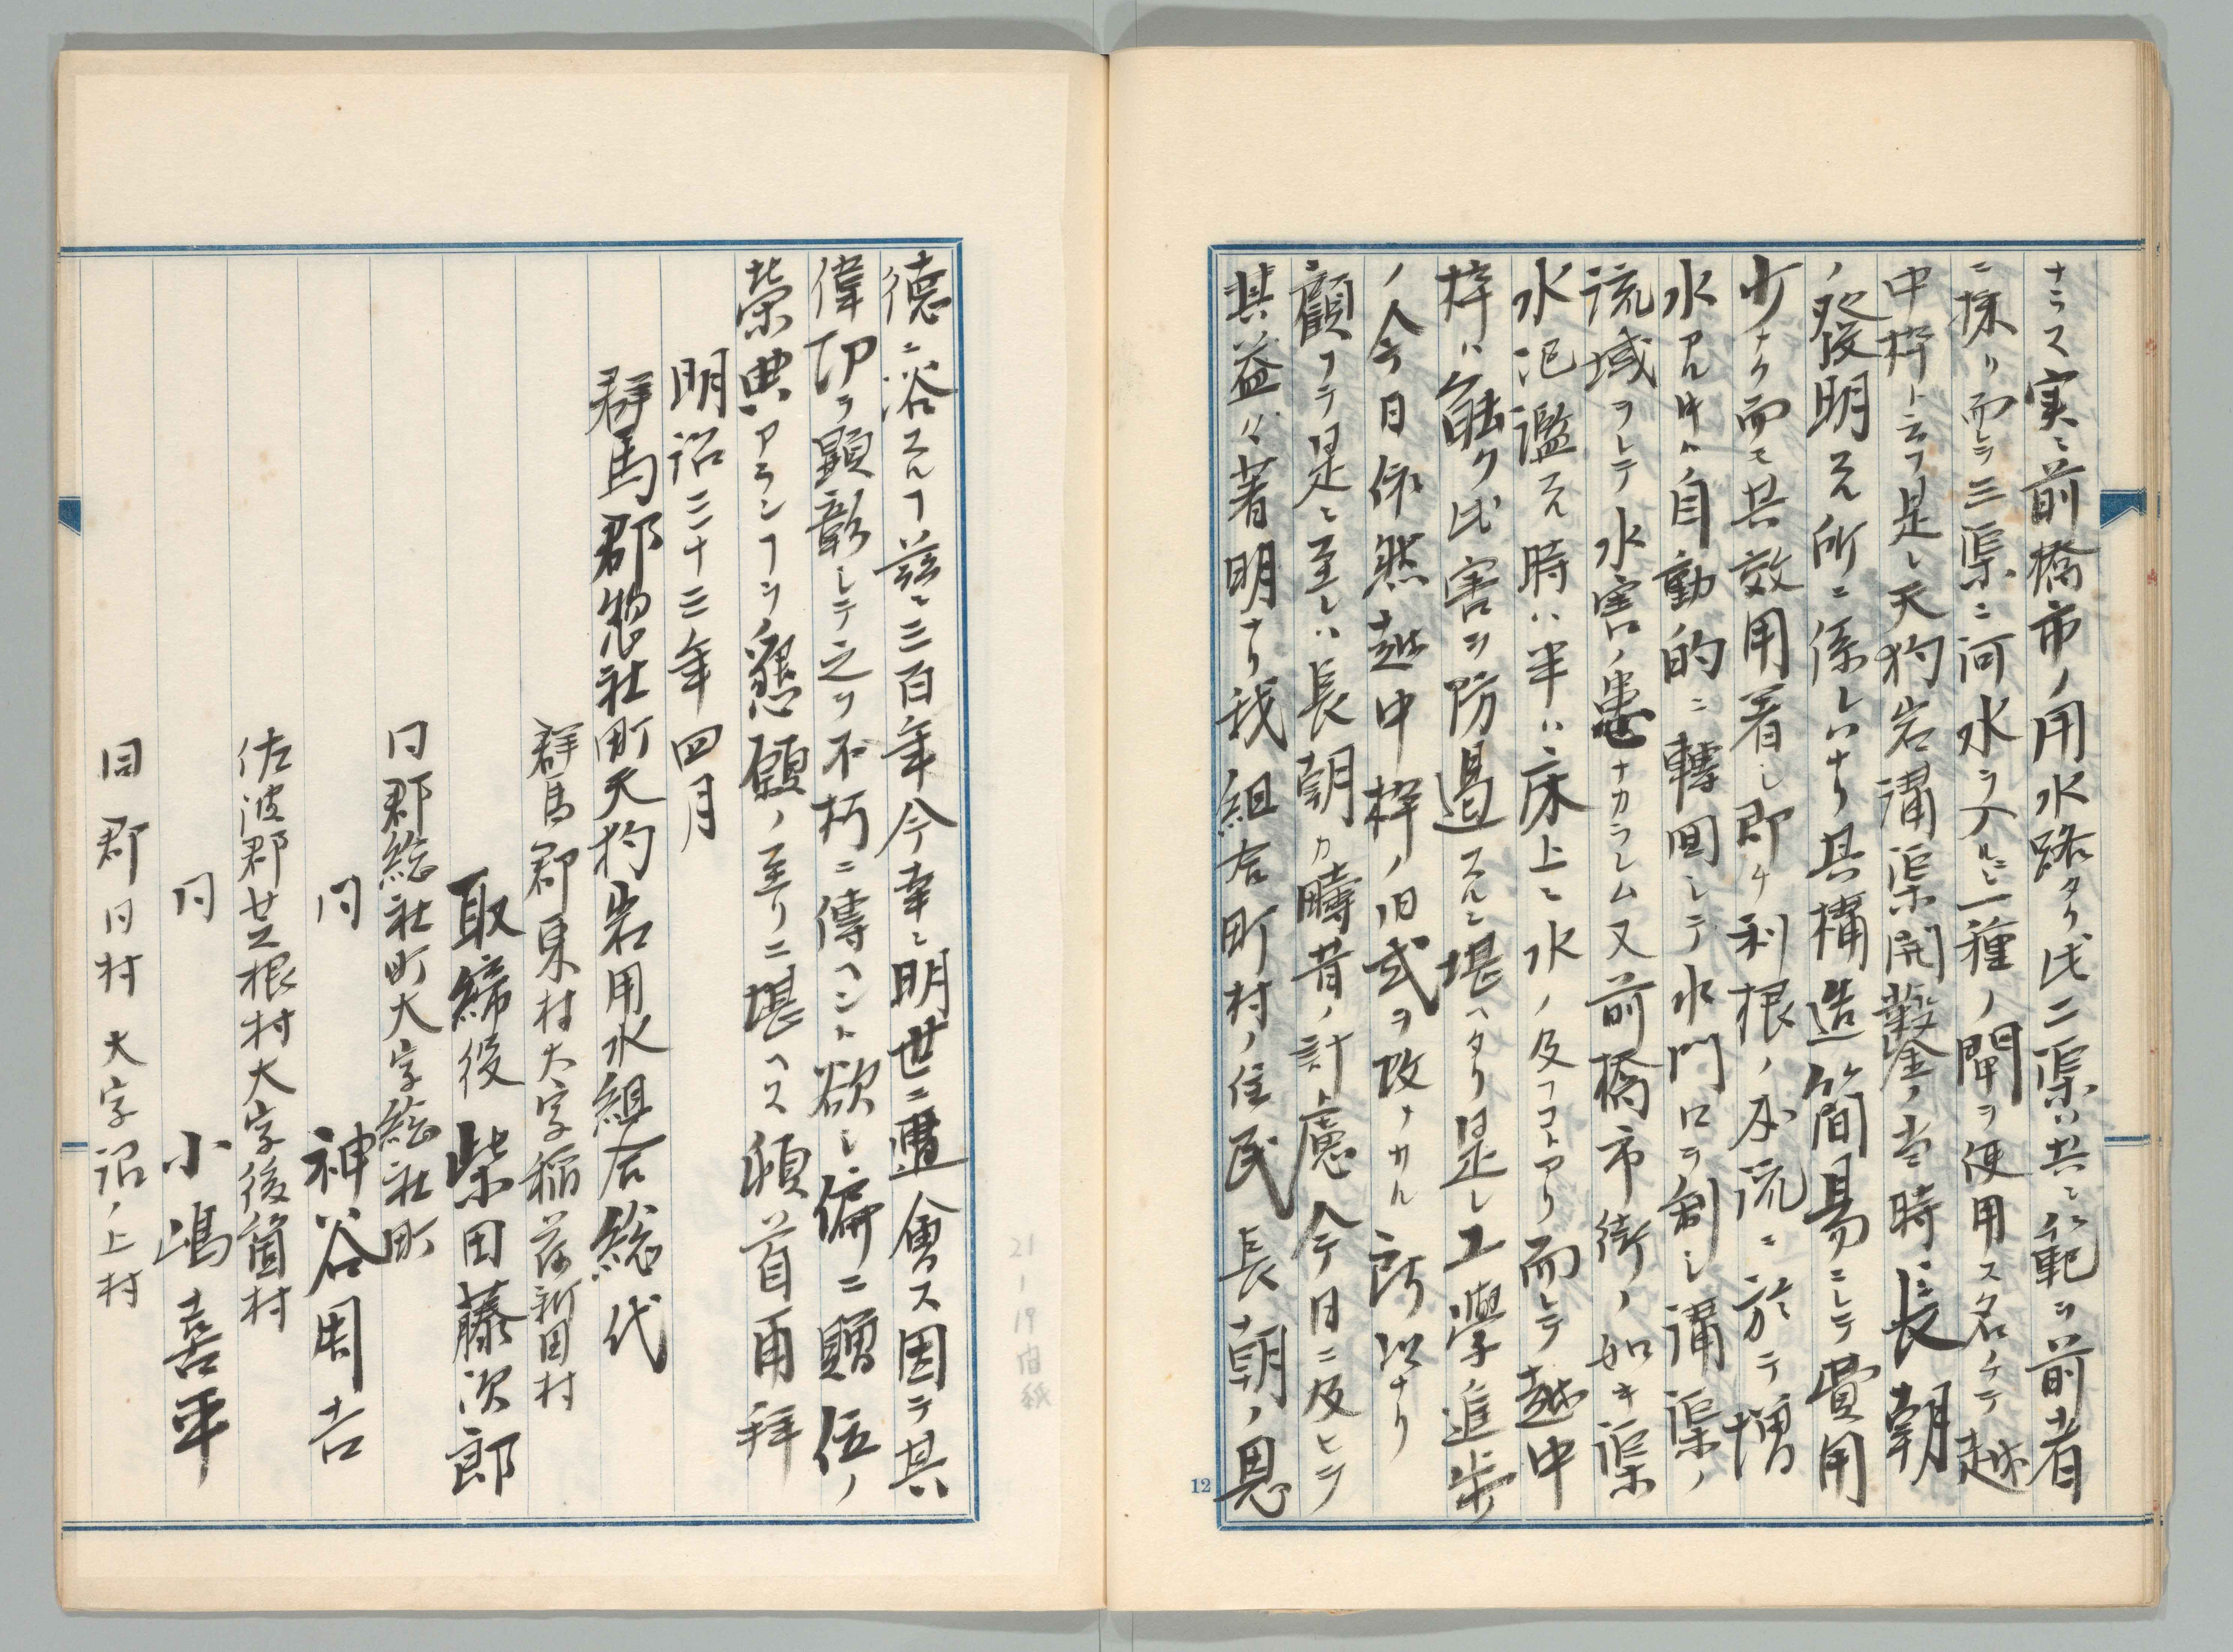 ナラス実ニ前橋市ノ用水路タリ此二渠ハ共ニ範ヲ前者
ニ採リ而シテ三渠ニ河水ヲ入ルニ一種ノ閘ヲ使用ス名ケテ越
中枠ト云フ是レ天狗岩溝渠開鑿ノ当時ニ長朝
ノ発明スル所ニ係レハナリ其構造簡易ニシテ費用
少ナク而モ其效用著シ即チ利根ノ本流ニ於テ増
水アル時ハ自動的ニ轉回シテ水門口ヲ制シ溝渠ノ
流域ヲシテ水害ノ患ナカラシム又前橋市街ノ如キ渠
水氾濫スル時ハ半ハ床上ニ水ノ及フコトアリ而シテ越中
枠ハ能ク此害ヲ防遏スルニ堪ヘタリ是レ工學進歩
ノ今日依然越中枠ノ旧式ヲ改メサル所以ナリ
顧フテ是ニ至レハ長朝カ疇昔ノ計慮今日ニ及ヒテ
其益々著明ナリ我組合町村ノ住民長朝ノ恩
12
徳ニ浴スルヿ茲ニ三百年今幸ニ明世ニ遭會ス因テ其
偉功ヲ顕彰シテ之ヲ不朽ニ傳ヘント欲シ偏ニ贈位ノ
栄典アランヿヲ懇願ノ至リニ堪ヘス頓首再拜
明治三十三年四月
群馬郡惣社町天狗岩用水組合総代
群馬郡東村大字稲荷新田村
取締役 柴田藤次郎
同郡総社町大字総社町
同 神谷周吉
佐波郡芝根村大字後箇村
同 小嶋喜平
同郡同村大字沼ノ上村
21
19
白紙